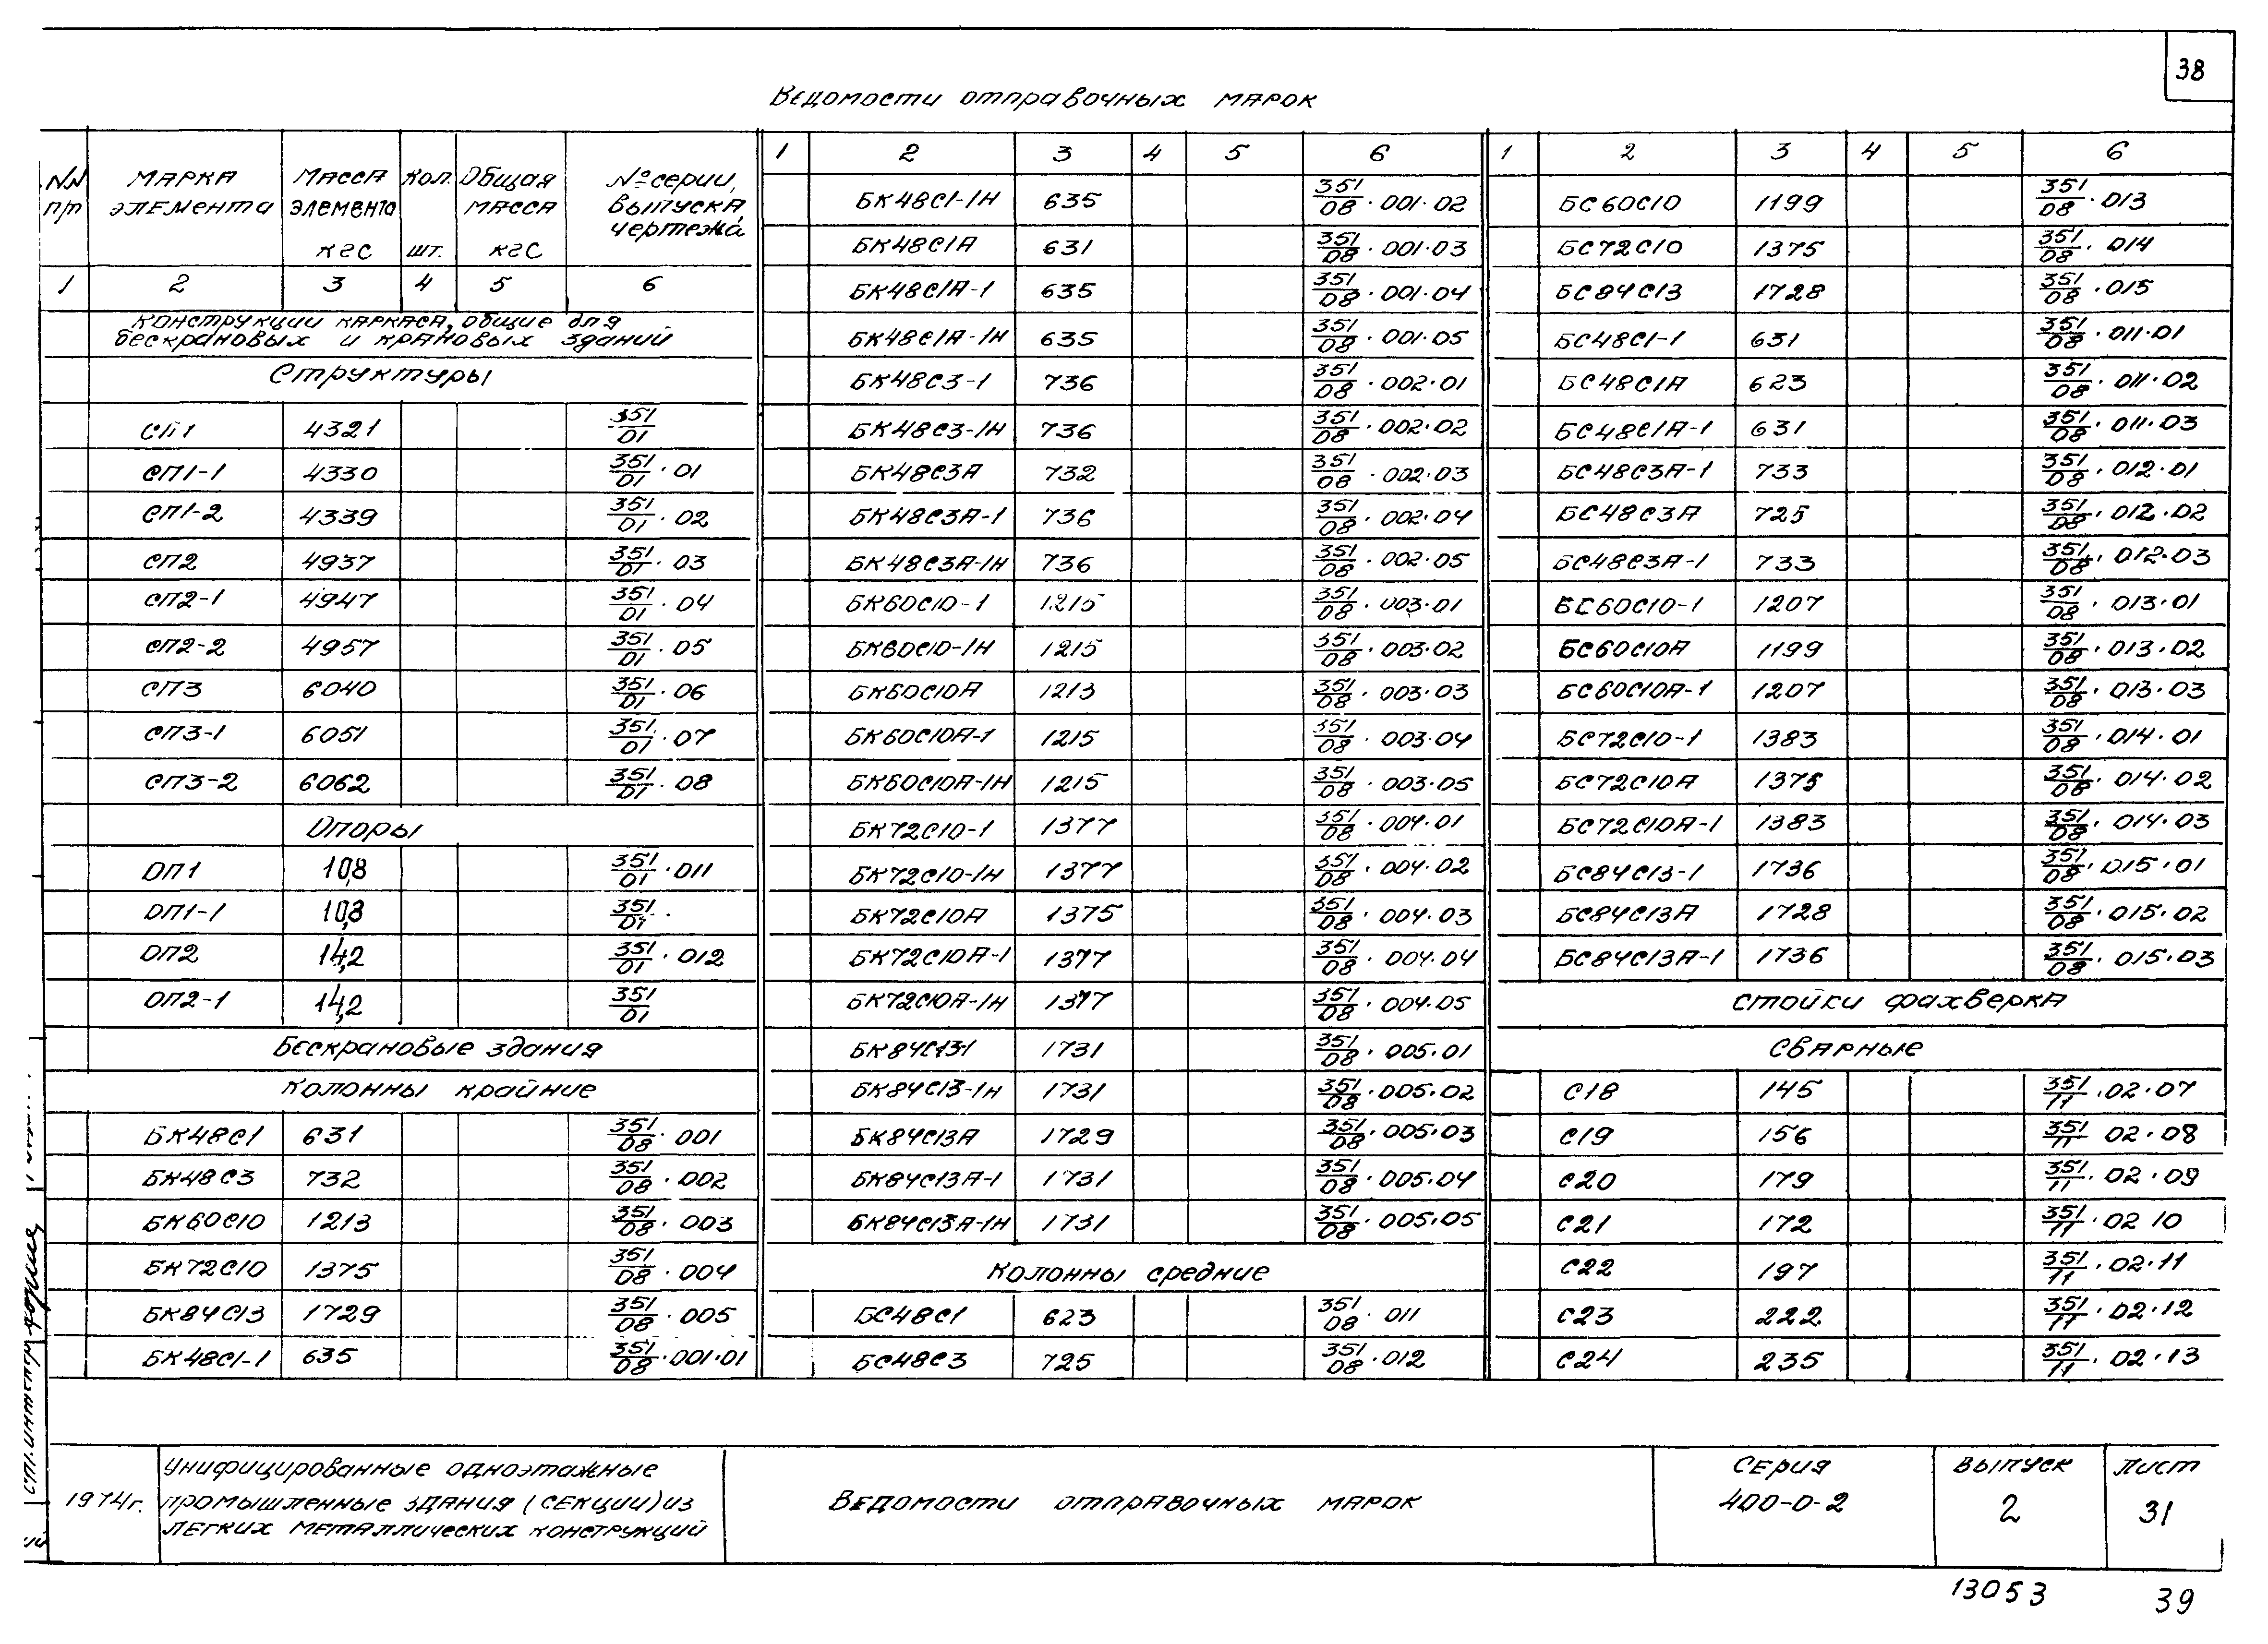 38
Ведомости отправочных марок
NN п/п | Марка элемента | Масса элемента кгс | Кол. шт. | Общая масса кгс | № серии, выпуска, чертежа
1 2 3 4 5 6
Конструкции каркаса, общие для
бескрановых и крановых зданий
Структуры
СП1 4321 351/01
СП1-1 4330 351/01·01
СП1-2 4339 351/01·02
СП2 4937 351/01·03
СП2-1 4947 351/01·04
СП2-2 4957 351/01·05
СП3 6040 351/01·06
СП3-1 6051 351/01·07
СП3-2 6062 351/01·08
Опоры
ОП1 10,8 351/01·011
ОП1-1 10,8 351/01·
ОП2 14,2 351/01·012
ОП2-1 14,2 351/01
Бескрановые здания
Колонны крайние
БК48С1 631 351/08·001
БК48С3 732 351/08·002
БК60С10 1213 351/08·003
БК72С10 1375 351/08·004
БК84С13 1729 351/08·005
БК48С1-1 635 351/08·001·01
1 2 3 4 5 6
БК48С1-1Н 635 351/08·001·02
БК48С1А 631 351/08·001·03
БК48С1А-1 635 351/08·001·04
БК48С1А-1Н 635 351/08·001·05
БК48С3-1 736 351/08·002·01
БК48С3-1Н 736 351/08·002·02
БК48С3А 732 351/08·002·03
БК48С3А-1 736 351/08·002·04
БК48С3А-1Н 736 351/08·002·05
БК60С10-1 1215 351/08·003·01
БК60С10-1Н 1215 351/08·003·02
БК60С10А 1213 351/08·003·03
БК60С10А-1 1215 351/08·003·04
БК60С10А-1Н 1215 351/08·003·05
БК72С10-1 1377 351/08·004·01
БК72С10-1Н 1377 351/08·004·02
БК72С10А 1375 351/08·004·03
БК72С10А-1 1377 351/08·004·04
БК72С10А-1Н 1377 351/08·004·05
БК84С13-1 1731 351/08·005·01
БК84С13-1Н 1731 351/08·005·02
БК84С13А 1729 351/08·005·03
БК84С13А-1 1731 351/08·005·04
БК84С13А-1Н 1731 351/08·005·05
Колонны средние
БС48С1 623 351/08·011
БС48С3 725 351/08·012
1 2 3 4 5 6
БС60С10 1199 351/08·013
БС72С10 1375 351/08·014
БС84С13 1728 351/08·015
БС48С1-1 631 351/08·011·01
БС48С1А 623 351/08·011·02
БС48С1А-1 631 351/08·011·03
БС48С3А-1 733 351/08·012·01
БС48С3А 725 351/08·012·02
БС48С3А-1 733 351/08·012·03
БС60С10-1 1207 351/08·013·01
БС60С10А 1199 351/08·013·02
БС60С10А-1 1207 351/08·013·03
БС72С10-1 1383 351/08·014·01
БС72С10А 1375 351/08·014·02
БС72С10А-1 1383 351/08·014·03
БС84С13-1 1736 351/08·015·01
БС84С13А 1728 351/08·015·02
БС84С13А-1 1736 351/08·015·03
Стойки фахверка
Сварные
С18 145 351/11·02·07
С19 156 351/11 02·08
С20 179 351/11·02·09
С21 172 351/11·02 10
С22 197 351/11·02·11
С23 222 351/11·02·12
С24 235 351/11·02·13
1974г.
Унифицированные одноэтажные
промышленные здания (секции) из
легких металлических конструкций
Ведомости отправочных марок
Серия
400-0-2
Выпуск
2
Лист
31
13053
39